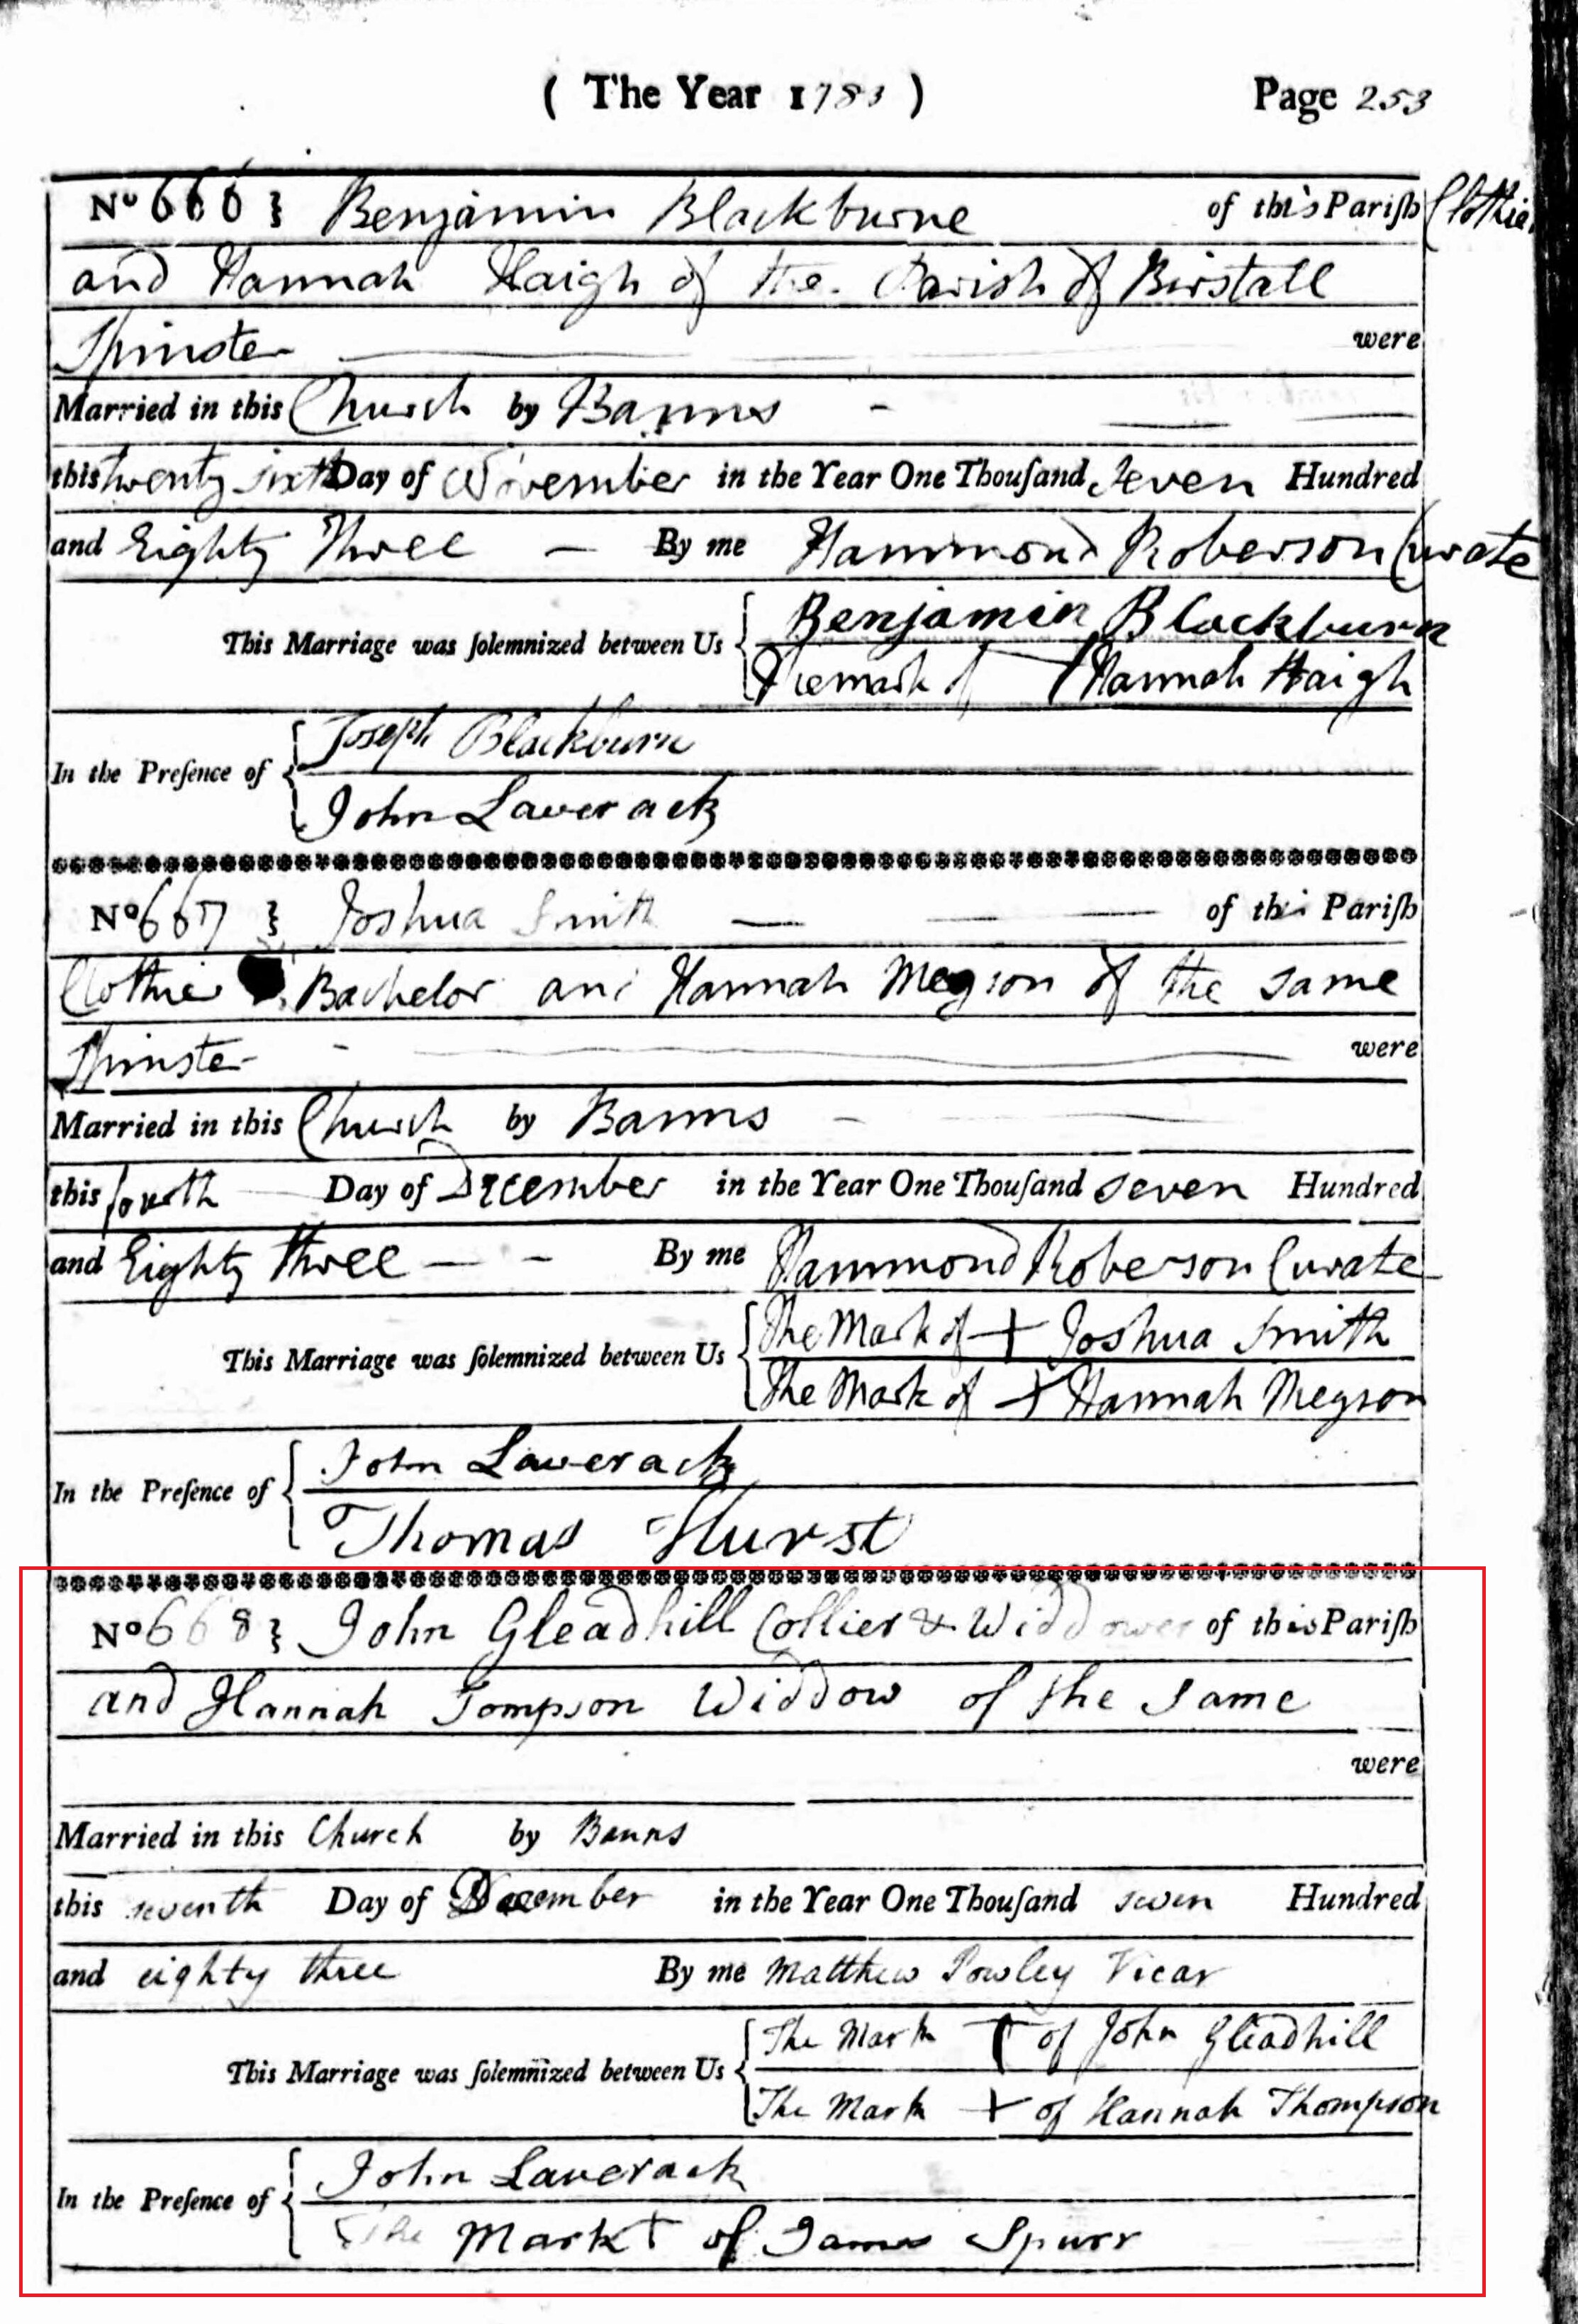 ( The Year 1783 ) Page 253
No 666 } Benjamin Blackburne of this Parish Clothier
and Hannah Haigh of the Parish of Birstall
Spinster were
Married in this Church by Banns
this twenty sixth Day of November in the Year One Thousand Seven Hundred
and Eighty Three By me Hammond Roberson Curate
This Marriage was solemnized between Us { Benjamin Blackburn
The mark of + Hannah Haigh
In the Presence of { Joseph Blackburn
John Laverack
No 667 } Joshua Smith of this Parish
Clothier Bachelor and Hannah Megson of the same
Spinster were
Married in this Church by Banns
this fourth Day of December in the Year One Thousand seven Hundred
and Eighty three By me Hammond Roberson Curate
This Marriage was solemnized between Us { The Mark of + Joshua Smith
The Mark of + Hannah Megson
In the Presence of { John Laverack
Thomas Hurst
No 668 } John Gleadhill Collier & Widdower of this Parish
and Hannah Tompson Widdow of the same
were
Married in this Church by Banns
this seventh Day of December in the Year One Thousand seven Hundred
and eighty three By me Matthew Powley Vicar
This Marriage was solemnized between Us { The Mark + of John Gleadhill
The Mark + of Hannah Thompson
In the Presence of { John Laverack
The Mark + of James Spurr